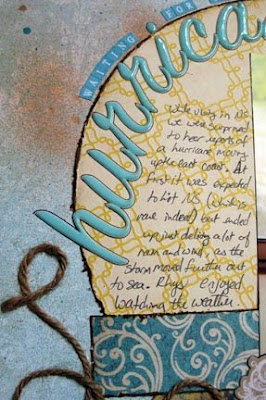 WAITING FOR
hurrica
While living in NS
we were surprised
to hear reports of
a hurricane moving
up the East coast. At
first it was expected
to hit NS (which is
rare indeed) but ended
up just delivering a lot of
rain and wind, as the
storm moved further out
to sea. Rhys enjoyed
watching the weather.